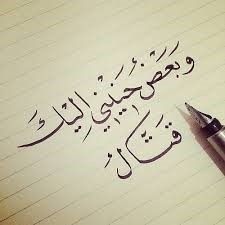 وَبَعَضُ حَنِيْنِي إِليْكَ
قَتَّالْ